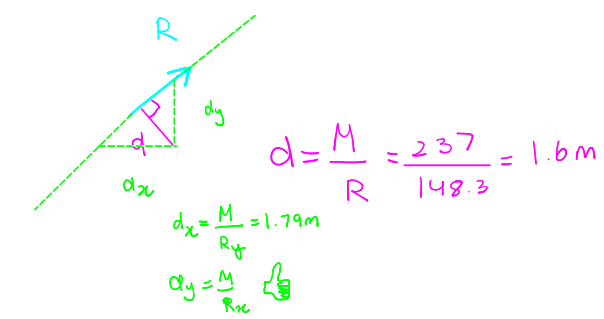 R
dy
d
dx
d = M/R = 237/148.3 = 1.6m
dx = M/Ry = 1.79m
dy = M/Rx